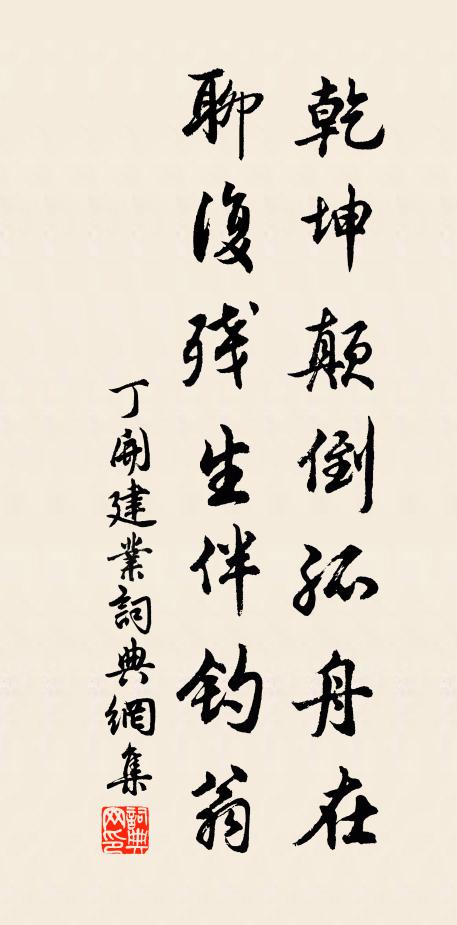 乾坤颠倒孤舟在
聊復残生伴钓翁
丁開建業詞典網集
詞典网印